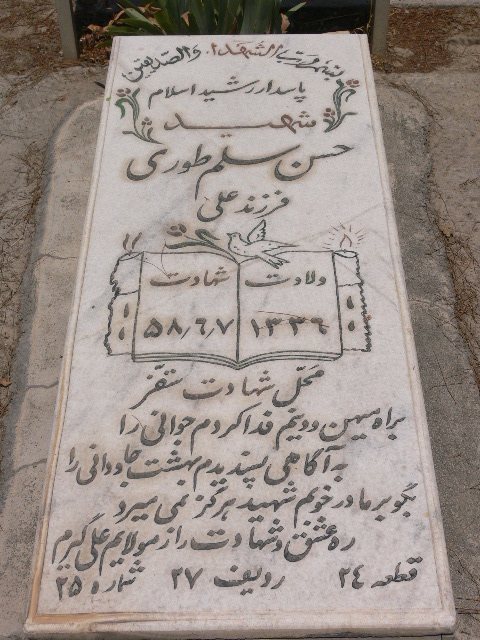 بنام رب الشهداء والصدیقین
پاسدار رشید اسلام
شهید
حسن سلم طوری
فرزند علی
ولادت
۱۳۳۶
شهادت
۵۸٫۶٫۷
محل شهادت سقز
براه میهن و دینم فدا کردم جوانی را
به آگاهی پسندیدم بهشت جاودانی را
بگو بر مادر خوبم شهید هرگز نمی میرد
ره عشق و شهادت را ز مولایم علی گیرم
قطعه ۲۴ ردیف ۲۷ شماره ۲۵